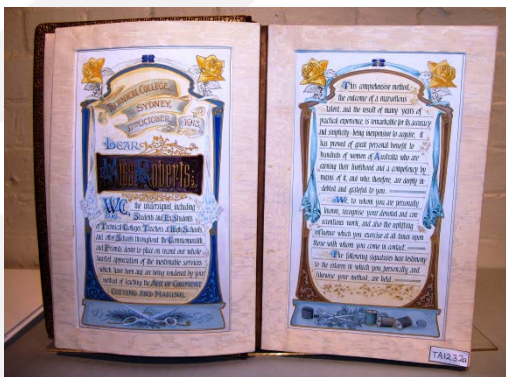 TECHNICAL COLLEGE
SYDNEY,
17th OCTOBER 1913.
DEAR
Miss Roberts:
We, the undersigned, including
Students and Ex-Students
of Technical Colleges, Teachers of High Schools,
and other Schools throughout the Commonwealth,
and Friends desire to place on record our whole
hearted appreciation of the inestimable services
which have been and are being rendered by your
method of teaching the ART OF GARMENT
CUTTING AND MAKING.
This comprehensive method,
the outcome of a marvellous
talent, and the result of many years of
practical experience, is remarkable for its accuracy
and simplicity: being inexpensive to acquire, it
has proved of great personal benefit to
hundreds of women of Australia who are
earning their livelihood and a competency by
means of it, and who, therefore, are deeply in-
debted and grateful to you.
We, to whom you are personally
known, recognise your devoted and con-
scientious work, and also the uplifting
influence which you exercise at all times upon
those with whom you come in contact.
The following signatures bear testimony
to the esteem in which you personally and
likewise your method, are held.
TA1232a